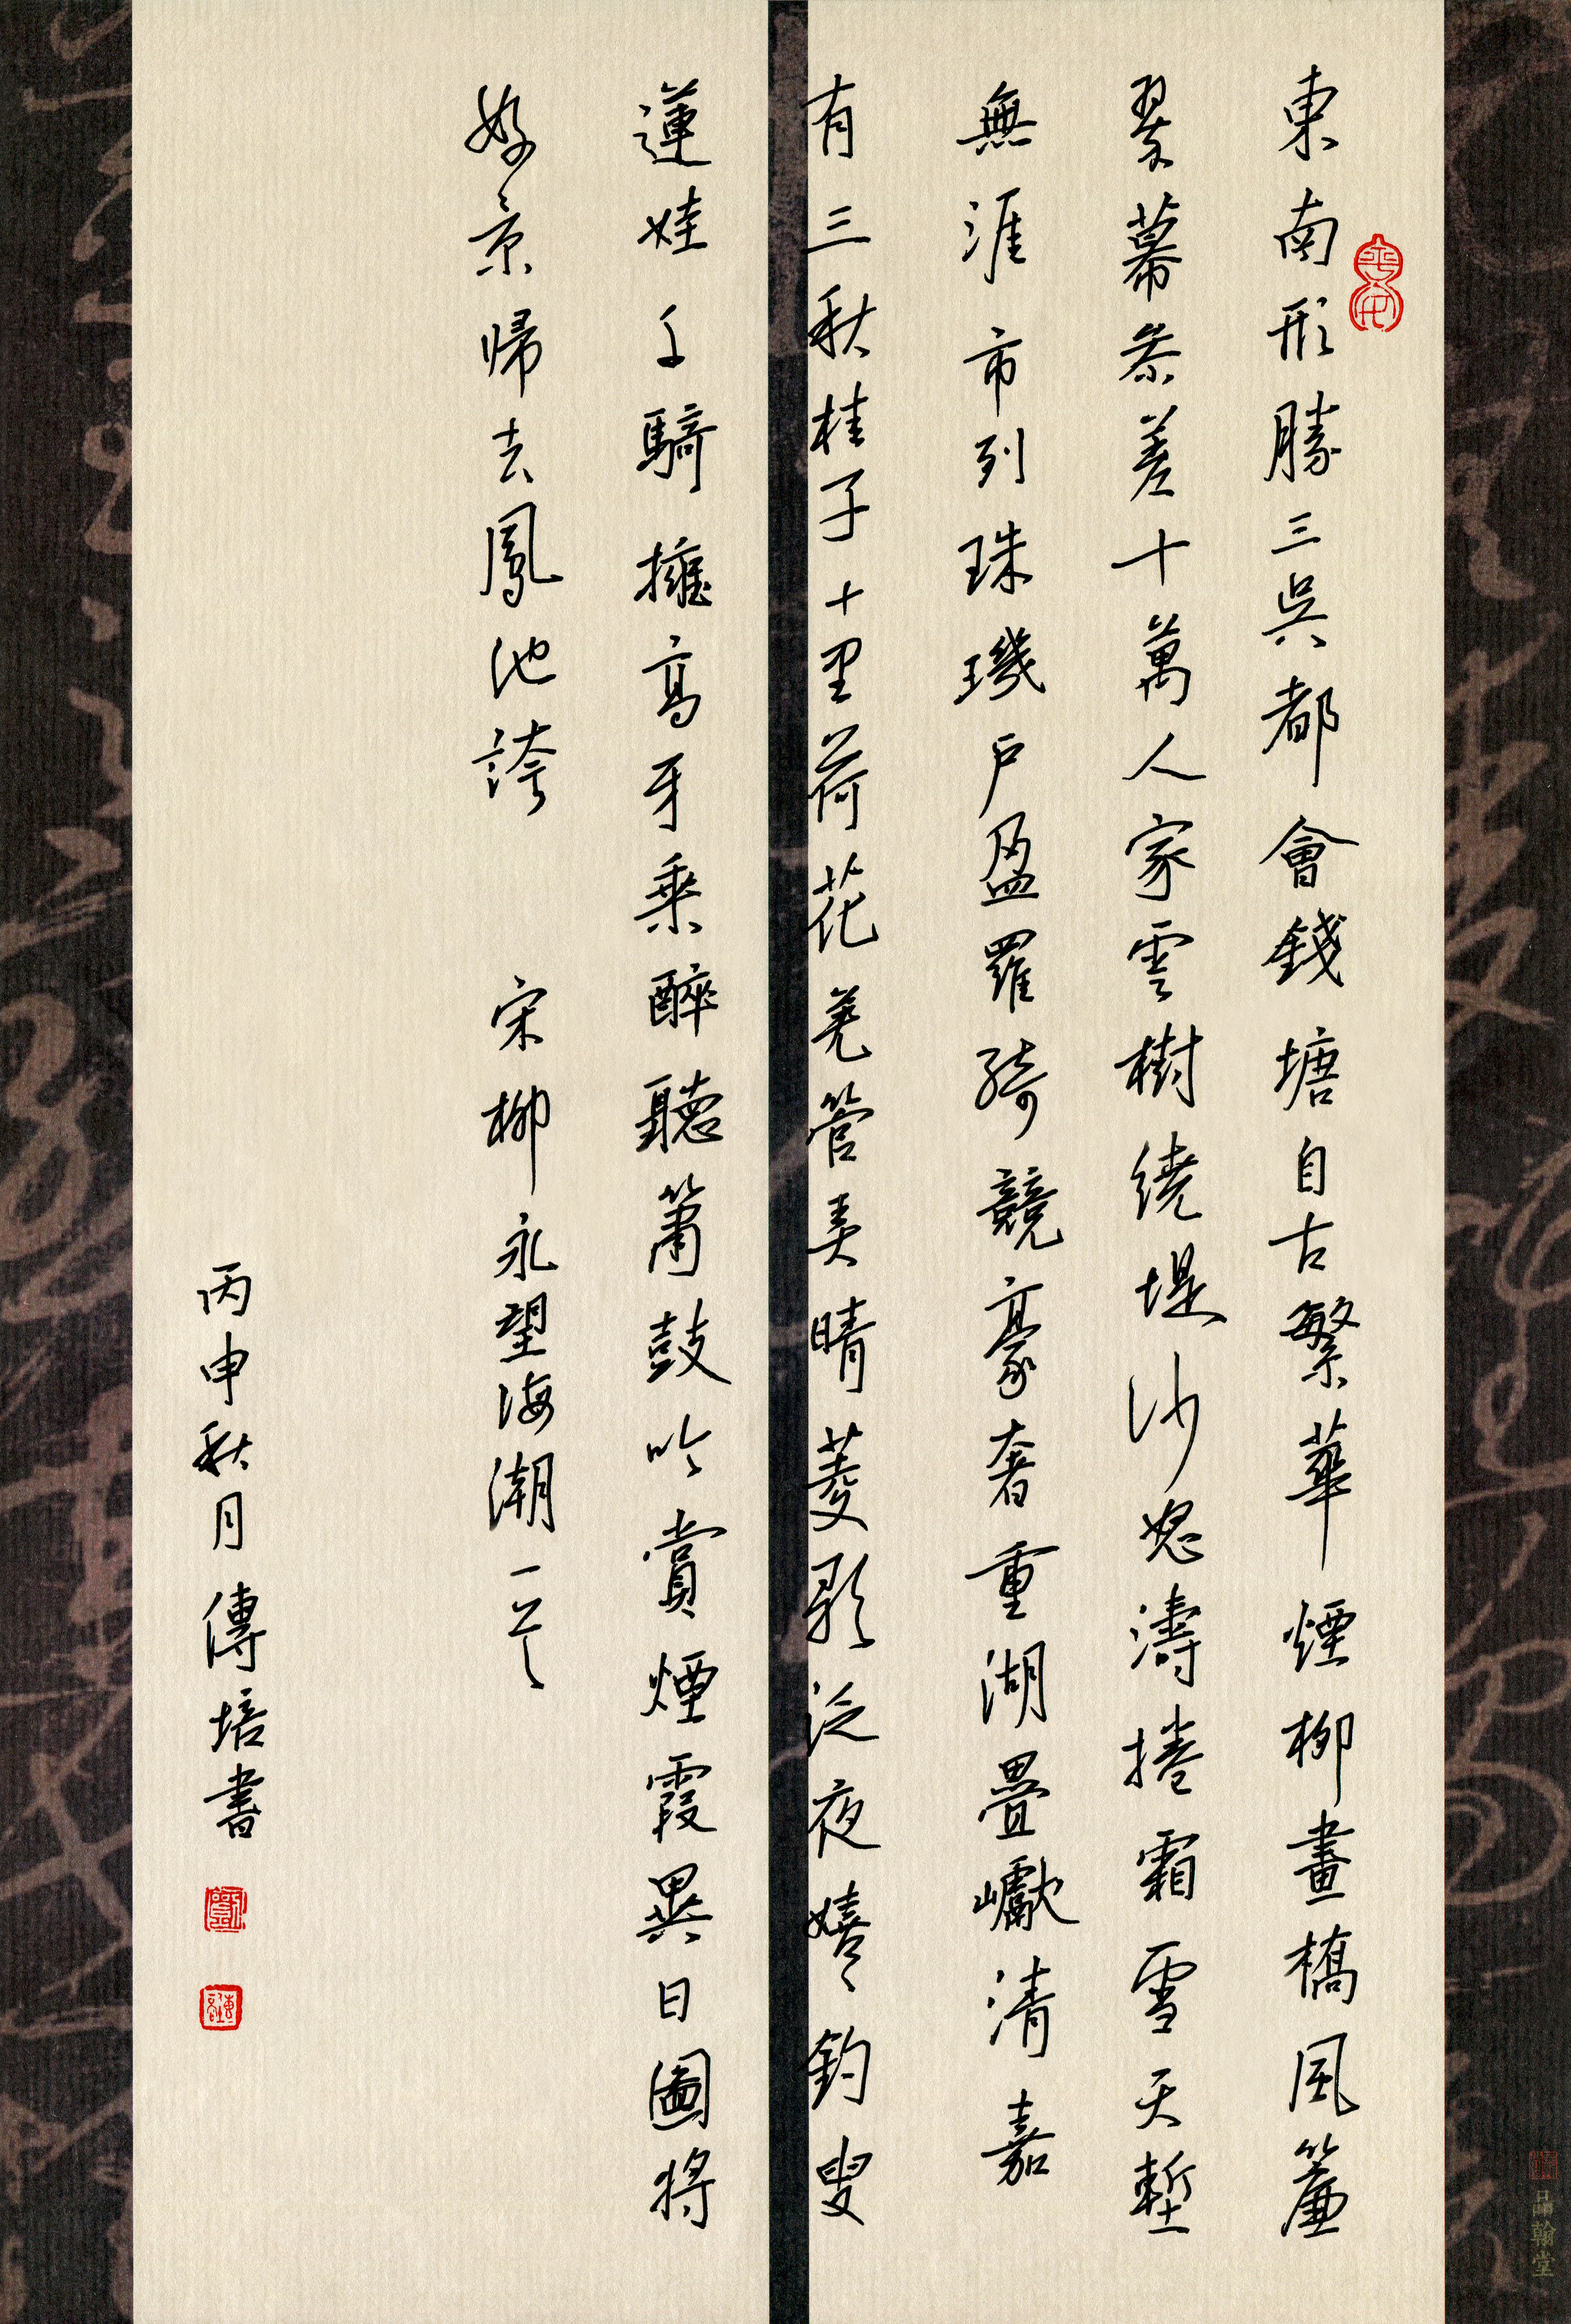 東南形勝三吳都會錢塘自古繁華煙柳畫橋風簾
翠幕參差十萬人家雲樹繞堤沙怒濤捲霜雪天塹
無涯市列珠璣戶盈羅綺競豪奢重湖疊巘清嘉
有三秋桂子十里荷花羌管弄晴菱歌泛夜嬉嬉釣叟
蓮娃千騎擁高牙乘醉聽簫鼓吟賞煙霞異日圖將
好景歸去鳳池誇 宋柳永望海潮一首
丙申秋月傳培書
品翰堂